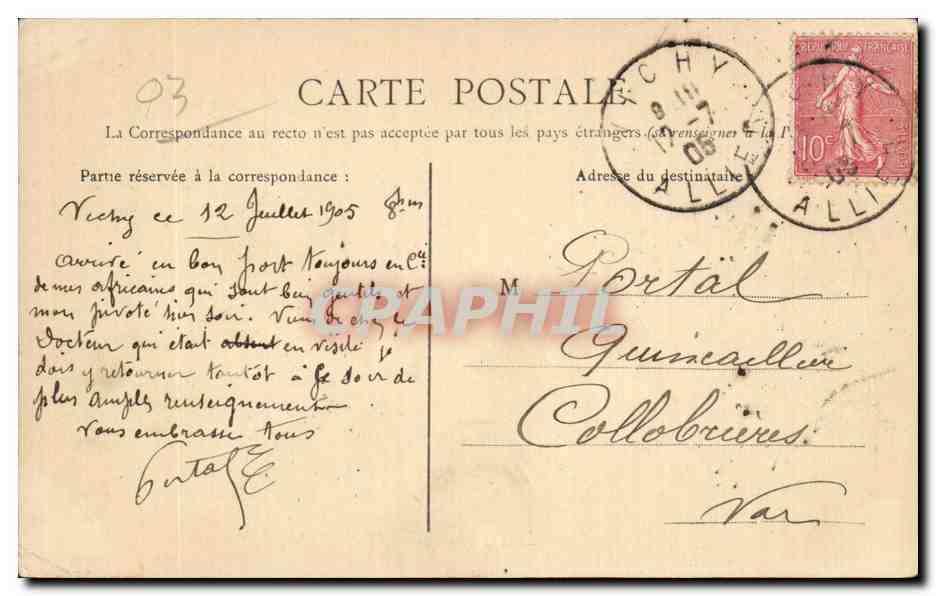 03
CARTE POSTALE
La Correspondance au recto n'est pas acceptée par tous les pays étrangers (se renseigner à la
Partie réservée à la correspondance :
Vichy ce 12 Juillet 1905
arrivé en bon port toujours en Cie
de mes africains qui sont bien gentils et
mon pivoté hier soir. Viens de chez le
Docteur qui était absent en visite je
dois y retourner tantôt à ce soir de
plus amples renseignements
Vous embrasse tous
Portal E
Adresse du destinataire
M Portal
Quincaillier
Collobrières
Var
VICHY
ALLIER
12 -7
05
REPUBLIQUE FRANÇAISE
10c
POSTES
ALLIER
CPAPHIL